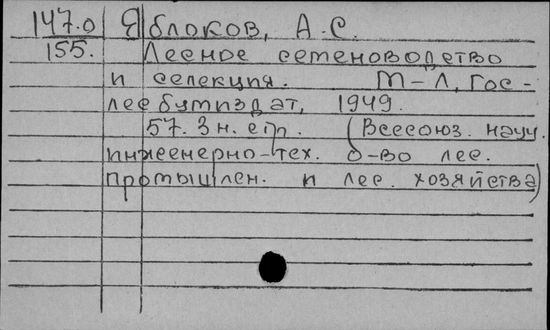 147.0 Яблоков, А.С.
155. Лесное семеноводство
и селекция. М-Л, Гос-
лесбумиздат, 1949.
57. 3 н. стр. (Всесоюз. науч.
инженерно-тех. о-во лес.
промышлен. и лес. хозяйства)